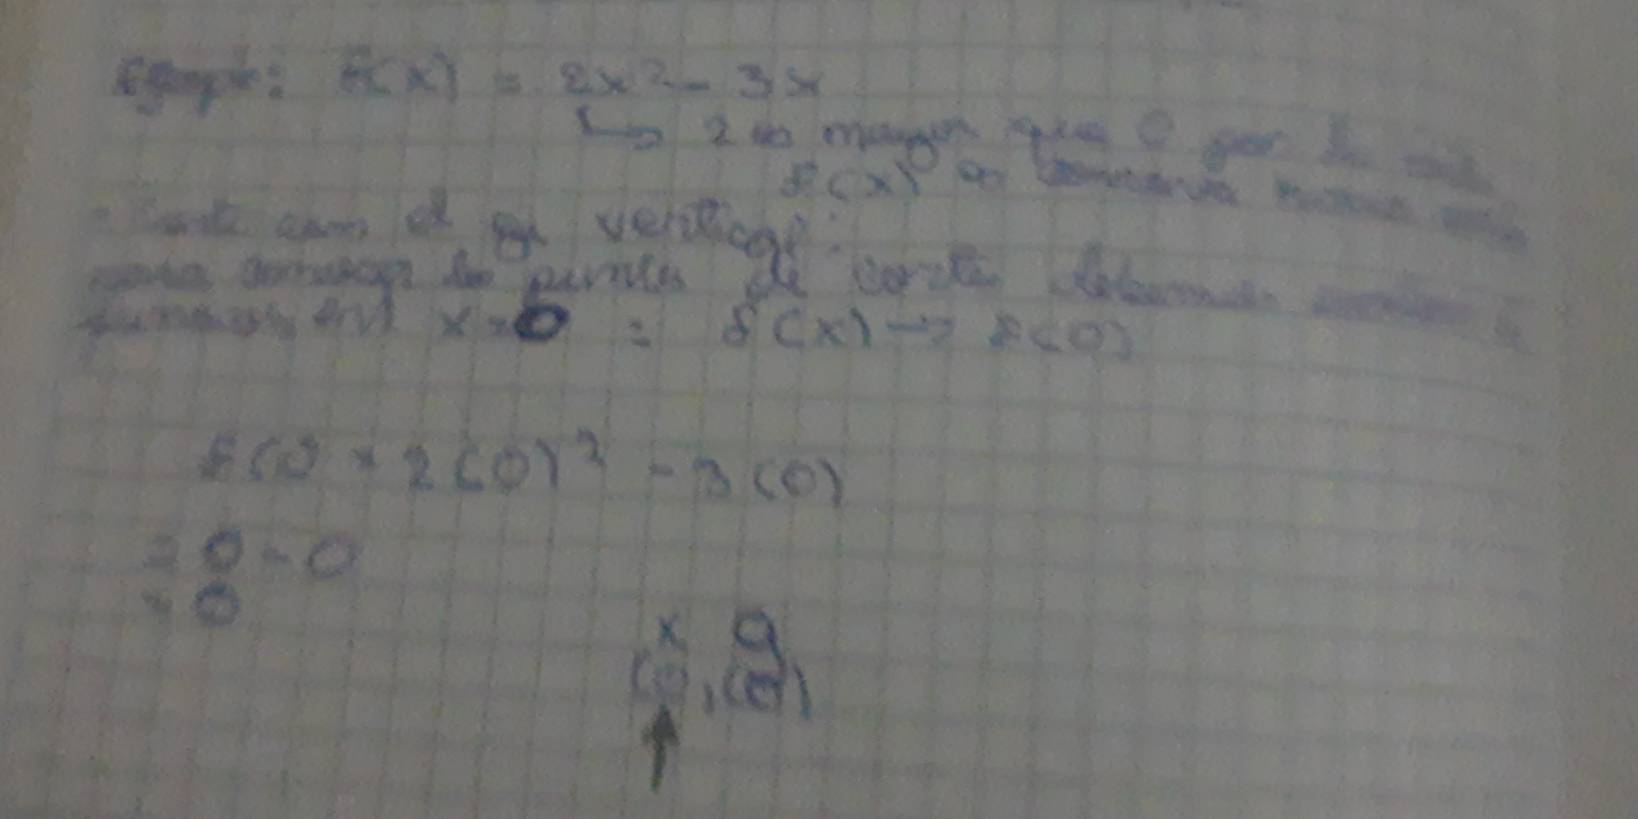 Ejemplo: f(x) = 2x² - 3x
↳ 2 es mayor que 0 por lo
f(x) es concava
- Corte con el eje vertical:
para conocer los puntos de corte debemos
x=0 = f(x) → f(0)
f(0 = 2(0)² - 3(0)
= 0 - 0
= 0
x y
(0,(0)